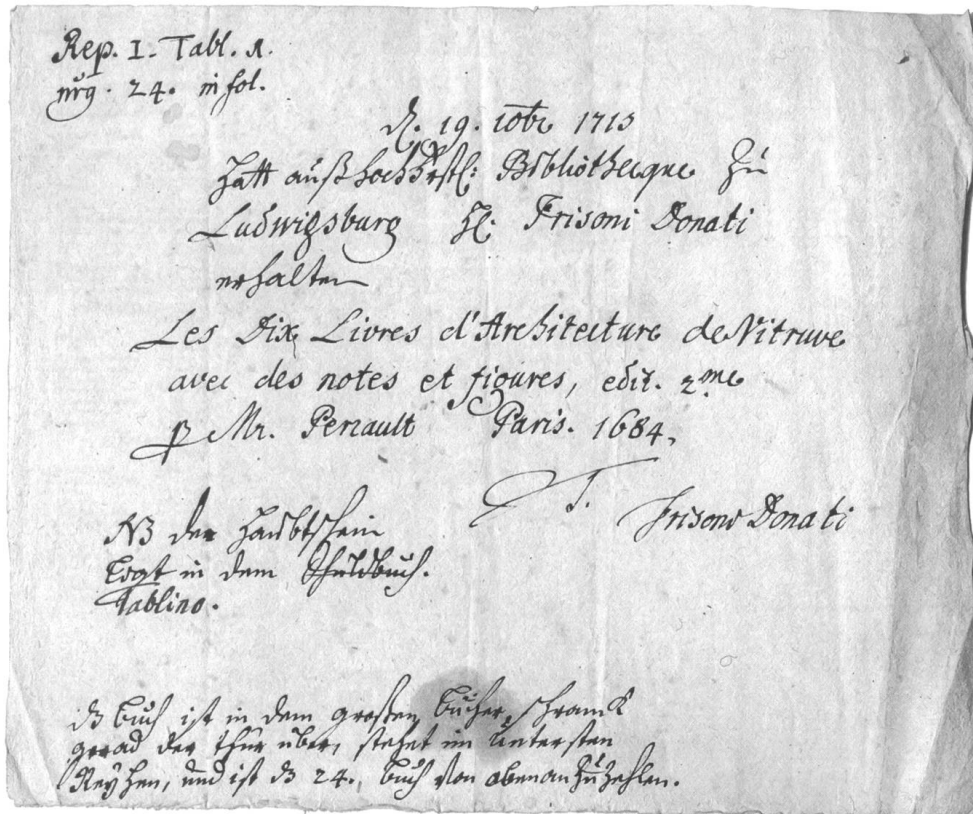 Rep. I. Tabl. 1.
nrg. 24. in fol.
d. 19. 10br 1715
Hatt auß hochfrstl: Bibliothecque zu
Ludwigsburg H. Frisoni Donati
erhalten
Les Dix Livres d'Architecture de Vitruve
avec des notes et figures, edit. 2me
p Mr. Perrault Paris. 1684.
T.
Frisoni Donati
NB der Haubtschein
ligt in dem Schuldbuch.
Tablino.
ds buch ist in dem grosten bücher schranck
gerad der thür über, stehet im untersten
Reyhen, und ist ds 24. buch von oben an zu zehlen.